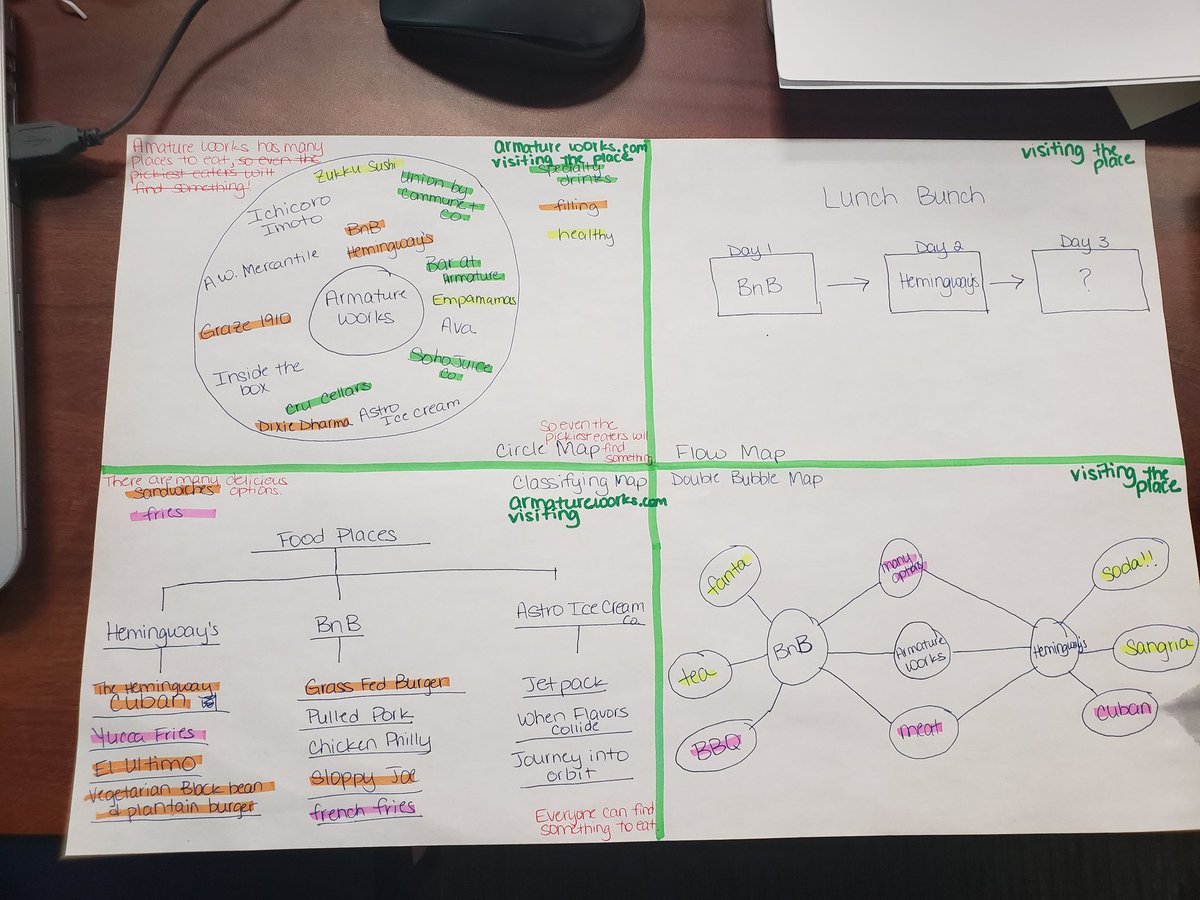 Amature Works has many
places to eat, so even the
pickiest eaters will
find something!
armature works.com
visiting the place
specialty
drinks
filling
healthy
Zukku Sushi
Union by
Commune +
Co.
Ichicoro
Imoto
BnB
Hemingway's
A.W. Mercantile
Bar at
Armature
Armature
Works
Empamamas
Ava
Graze 1910
Soho Juice
Co.
Inside the
box
Cru Cellars
Dixie Dharma
Astro
Ice cream
So even the
pickiest eaters will
find
something
Circle Map
visiting the
place
Lunch Bunch
Day 1
BnB
Day 2
Hemingway's
Day 3
?
Flow Map
There are many delicious
options.
sandwiches
fries
Classifying Map
armatureworks.com
visiting
Food Places
Hemingway's
The Hemingway
Cuban
Yucca Fries
El Ultimo
Vegetarian Black bean
& plantain burger
BnB
Grass Fed Burger
Pulled Pork
Chicken Philly
Sloppy Joe
french fries
Astro Ice Cream
Co.
Jetpack
When Flavors
Collide
Journey into
orbit
Everyone can find
something to eat
Double Bubble Map
visiting the
place
fanta
tea
BBQ
BnB
many
options
Armature
works
meat
Hemingway's
soda!!
Sangria
Cuban